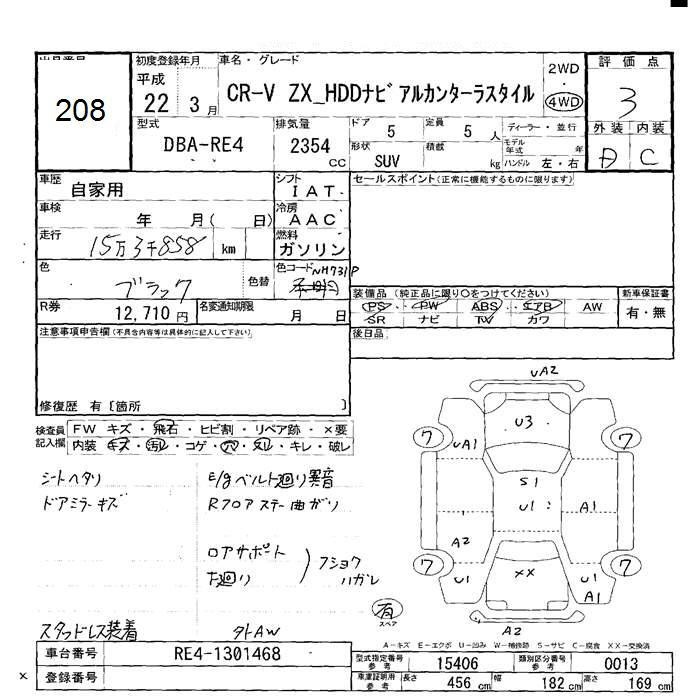 出品番号
208
初度登録年月
平成
22 3月
車名・グレード
CR-V ZX_HDDナビアルカンターラスタイル
2WD
4WD
評価点
3
型式
DBA-RE4
排気量
2354
cc
ドア
5
定員
5 人
形状
SUV
積載
kg
ディーラー・並行
モデル年式 年
ハンドル 左・右
外装 内装
C
車歴
自家用
車検
年 月( 日)
走行
15万3千858
km
色
ブラック
色替
シフト
IAT
冷房
AAC
燃料
ガソリン
色コード
NH731P
セールスポイント(正常に機能するものに限ります)
R券
12,710 円
名変通知期限
月 日
装備品(純正品に限り○をつけてください)
PS・PW ABS・エアB・AW
SR ナビ TV カワ
新車保証書
有・無
注意事項申告欄(不具合内容等は具体的に記入して下さい)
後日品
修復歴 有〔箇所 〕
検査員記入欄
FW キズ・飛石・ヒビ割・リペア跡・×要
内装 キズ・汚れ・コゲ・穴・スレ・キレ・破レ
シートヘタリ
ドアミラーキズ
E/gベルト廻り異音
Rフロアステー曲ガリ
ロアサポート
下廻り
フショク
ハガレ
スタッドレス装着
タトAW
UA2
U3
7
7
UA1
S1
U1
A1
A2
7
7
U1
XX
U1
A1
A2
有
スペア
A-キズ E-エクボ U-凹み W-補修跡 S-サビ C-腐食 XX-交換済
車台番号
RE4-1301468
登録番号
型式指定番号
参考
15406
類別区分番号
参考
0013
車庫証明用
参考
長さ 456 cm
幅 182 cm
高さ 169 cm